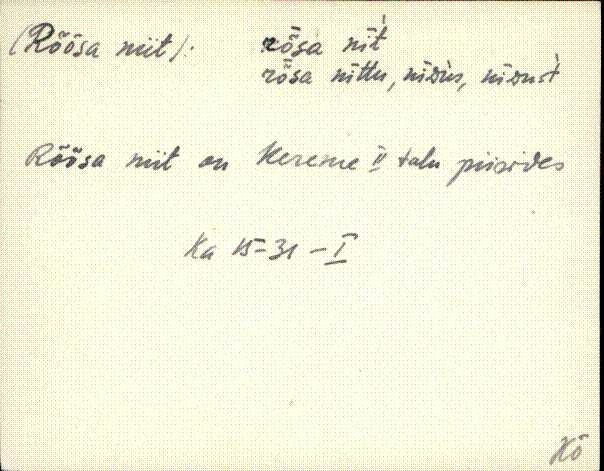 (Rõõsa niit): rȭsa nīt̀
rȭsa nīttu, nīdùs, nīdust̀
Rõõsa niit on Kereme II talu piirides
Ka 15-31 – I
Kõ